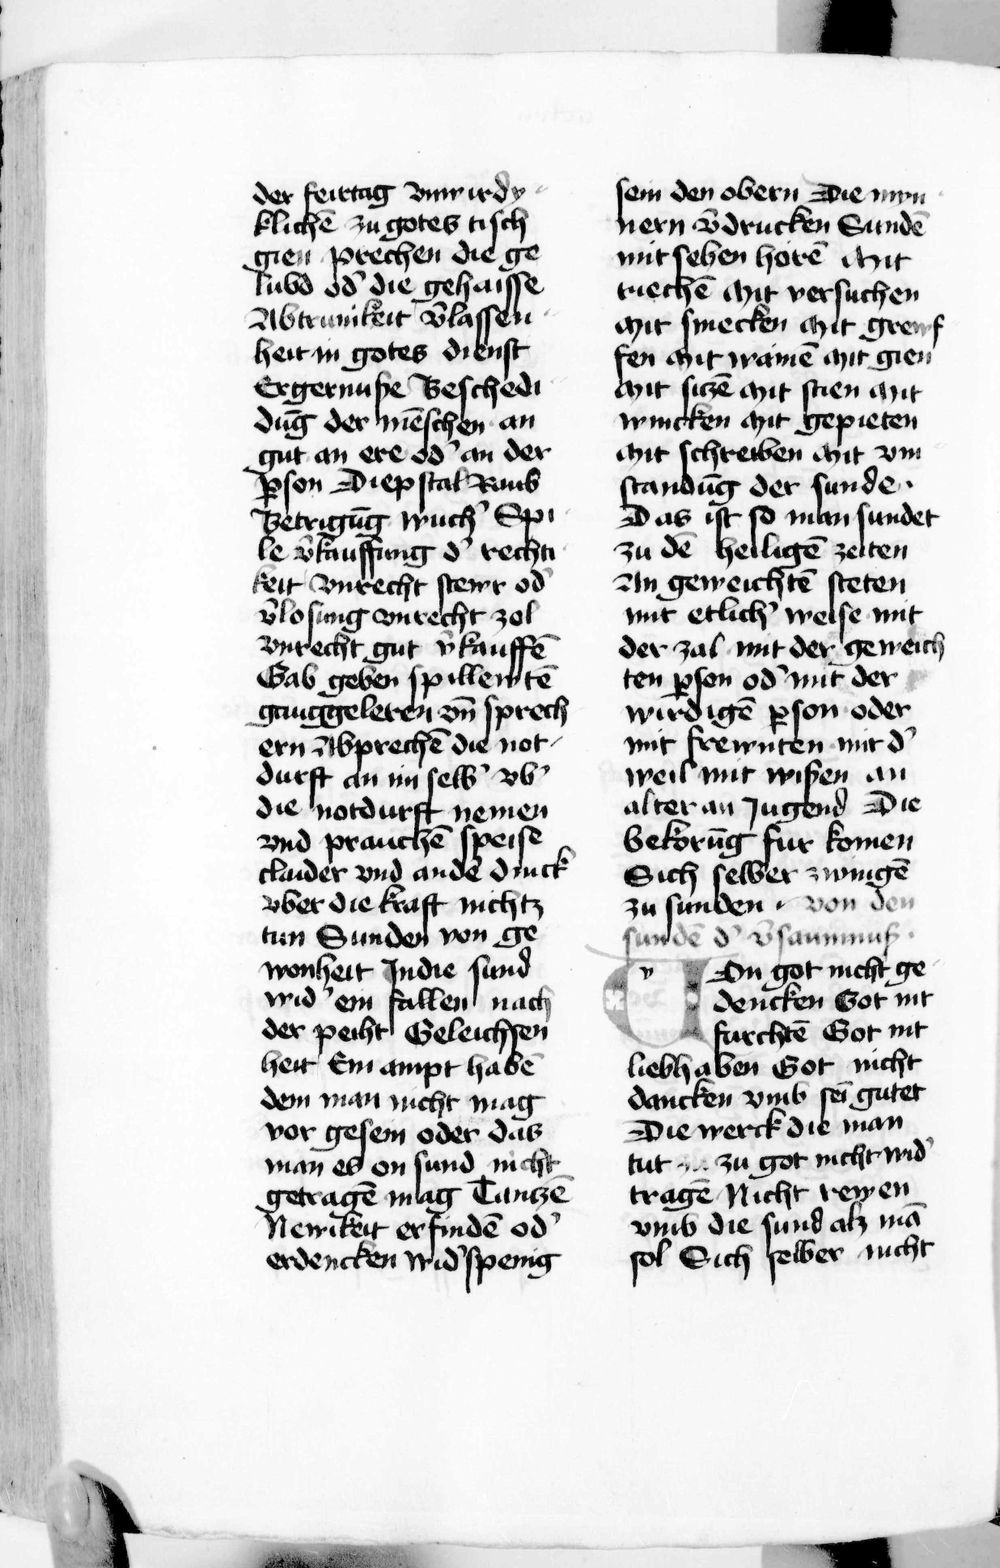 der feirtag vnwirdy
klichē zu gotes tisch
gien prechen die ge
lubd od' die gehaisse
Abtrunikeit v̄lassen
heit in gotes dienst
Ergernuße Beschedi
dūg der mēschen an
gut an ere od' an der
p̱son Diepstal Raub
Betrigūg wuch' Spi
le v̄kauffung d' rechti
keit vnrecht stewr od'
v̄losung vnrecht zol
vnrecht gut v̄kauffē
Gab geben spillewtē
gauggeleren vn̄ sprech
ern Abprechē die not
durft an im selb' vb'
die notdurft nemen
vnd prauchē speise
claider vnd ande druck
vber die kraft nichtz
tun Sunden von ge
wonheit In die sund
wid' ein fallen nach
der peiht Geleichsen
heit Ein ampt habē
dem man nicht mag
vor gesein oder das
man es on sund nicht
getragē mag Tantzē
Newikeit erfindē od'
erdencken wid'spenig
sein den obern Die myn
nern v̄drucken Sundē
mit sehen horē Mit
riechē Mit versuchen
Mit smecken Mit greyf
fen Mit wainē Mit gien
Mit sitzē Mit stien Mit
wincken Mit gepieten
Mit schreiben Mit vm
standūg der sunde
Das ist so man sundet
zu dē heiligē zeiten
An geweichtē steten
mit etlich' weise mit
der zal mit der geweich
ten p̱son od' mit der
wirdigē p̱son oder
mit frewnten mit d'
weil mit wißen an
alter an Jugend Die
bekorūg fur komen
Sich selber zwingē
zu sunden von den
sundē d' v̄saumnuß
Von got nicht ge
dencken Got nit
furchtē Got nit
liebhaben Got nicht
dancken vmb sei gutet
Die werck die man
tut zu got nicht wid'
tragē Nicht rewen
vmb die sund alz mā
sol Sich selber nicht